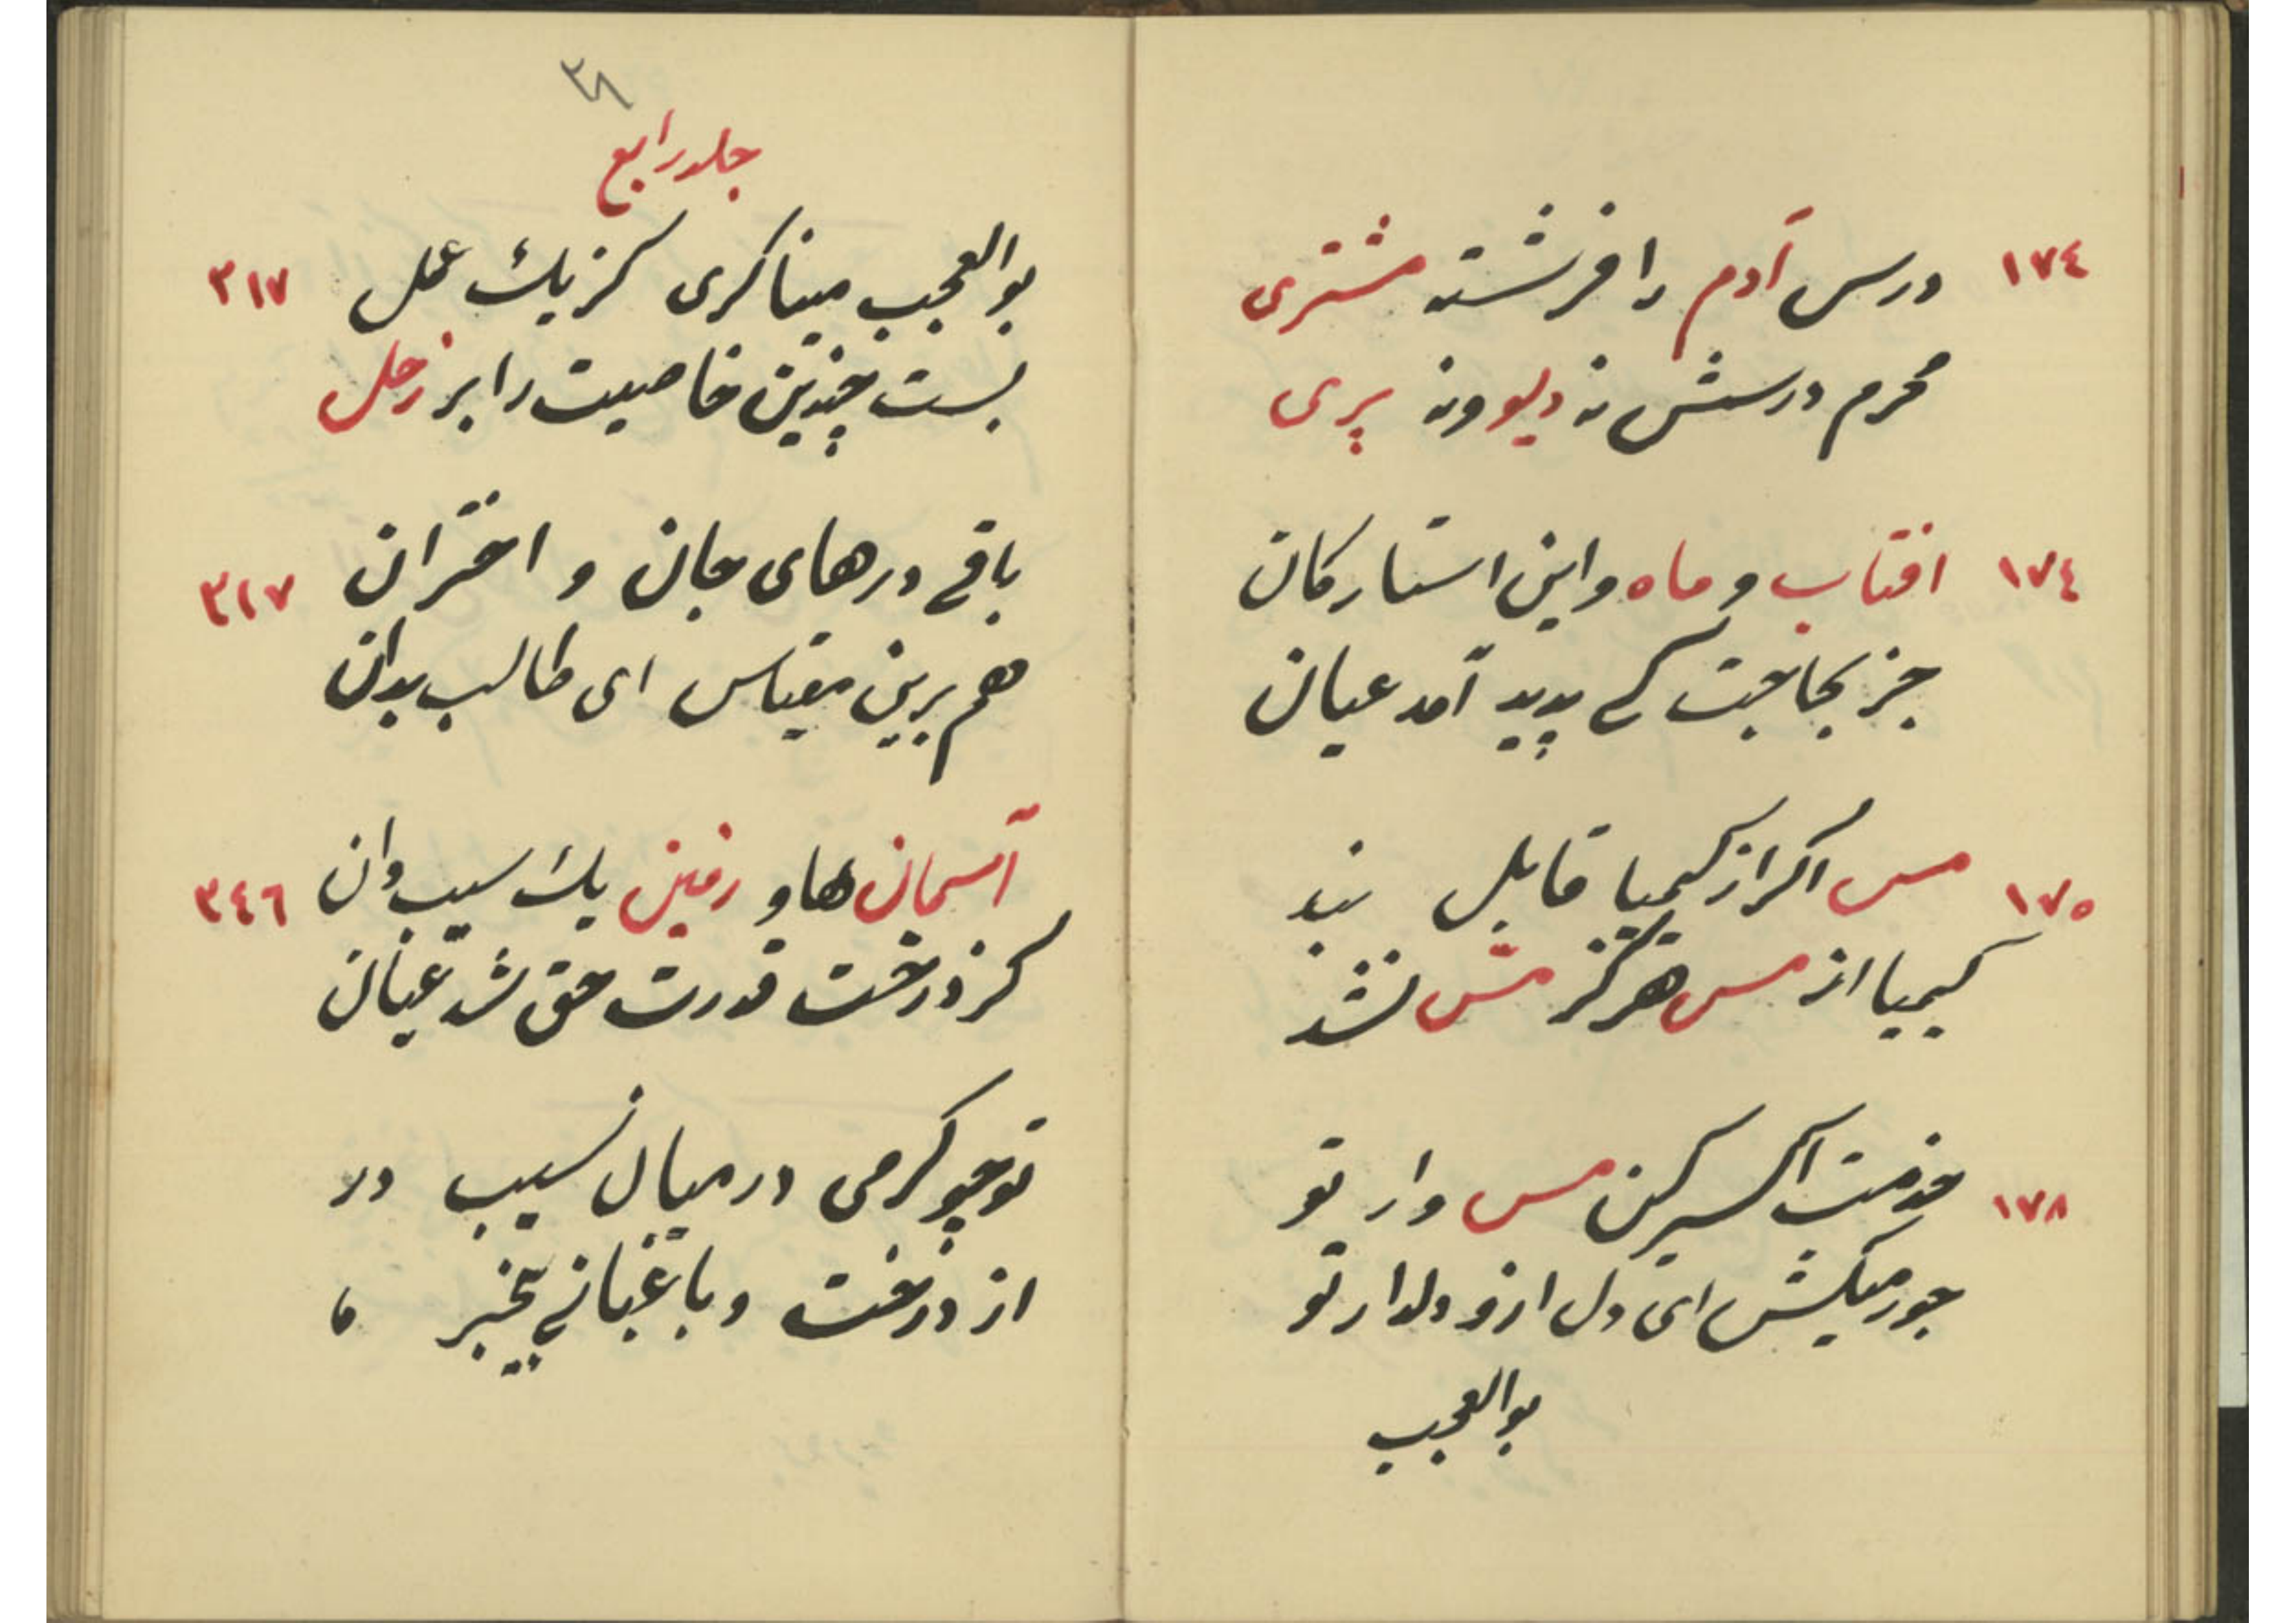 ١٧٤ درس آدم را فرشته مشتری
محرم درسش نه دیو و نه پری
١٧٤ افتاب و ماه و این استارکان
جز بحاجت کی پدید آمد عیان
١٧٥ مس اکر از کیمیا قابل نبد
کیمیا از مس هرکز مس نشد
١٧٨ خدمت اکسیر کن مس وار تو
جور میکش ای دل ازو دلدار تو
بوالعجب
جلد رابع
بوالعجب میناکری کز یك عمل ٣١٧
بست چندین خاصیت را بر زحل
باقی درهای جان و اختران ٣١٧
هم برین مقیاس ای طالب بدان
آسمان ها و زمین یك سیب دان ٣٤٦
کز درخت قدرت حق شد عیان
تو چو کرمی در میان سیب در
از درخت و باغبانی بیخبر